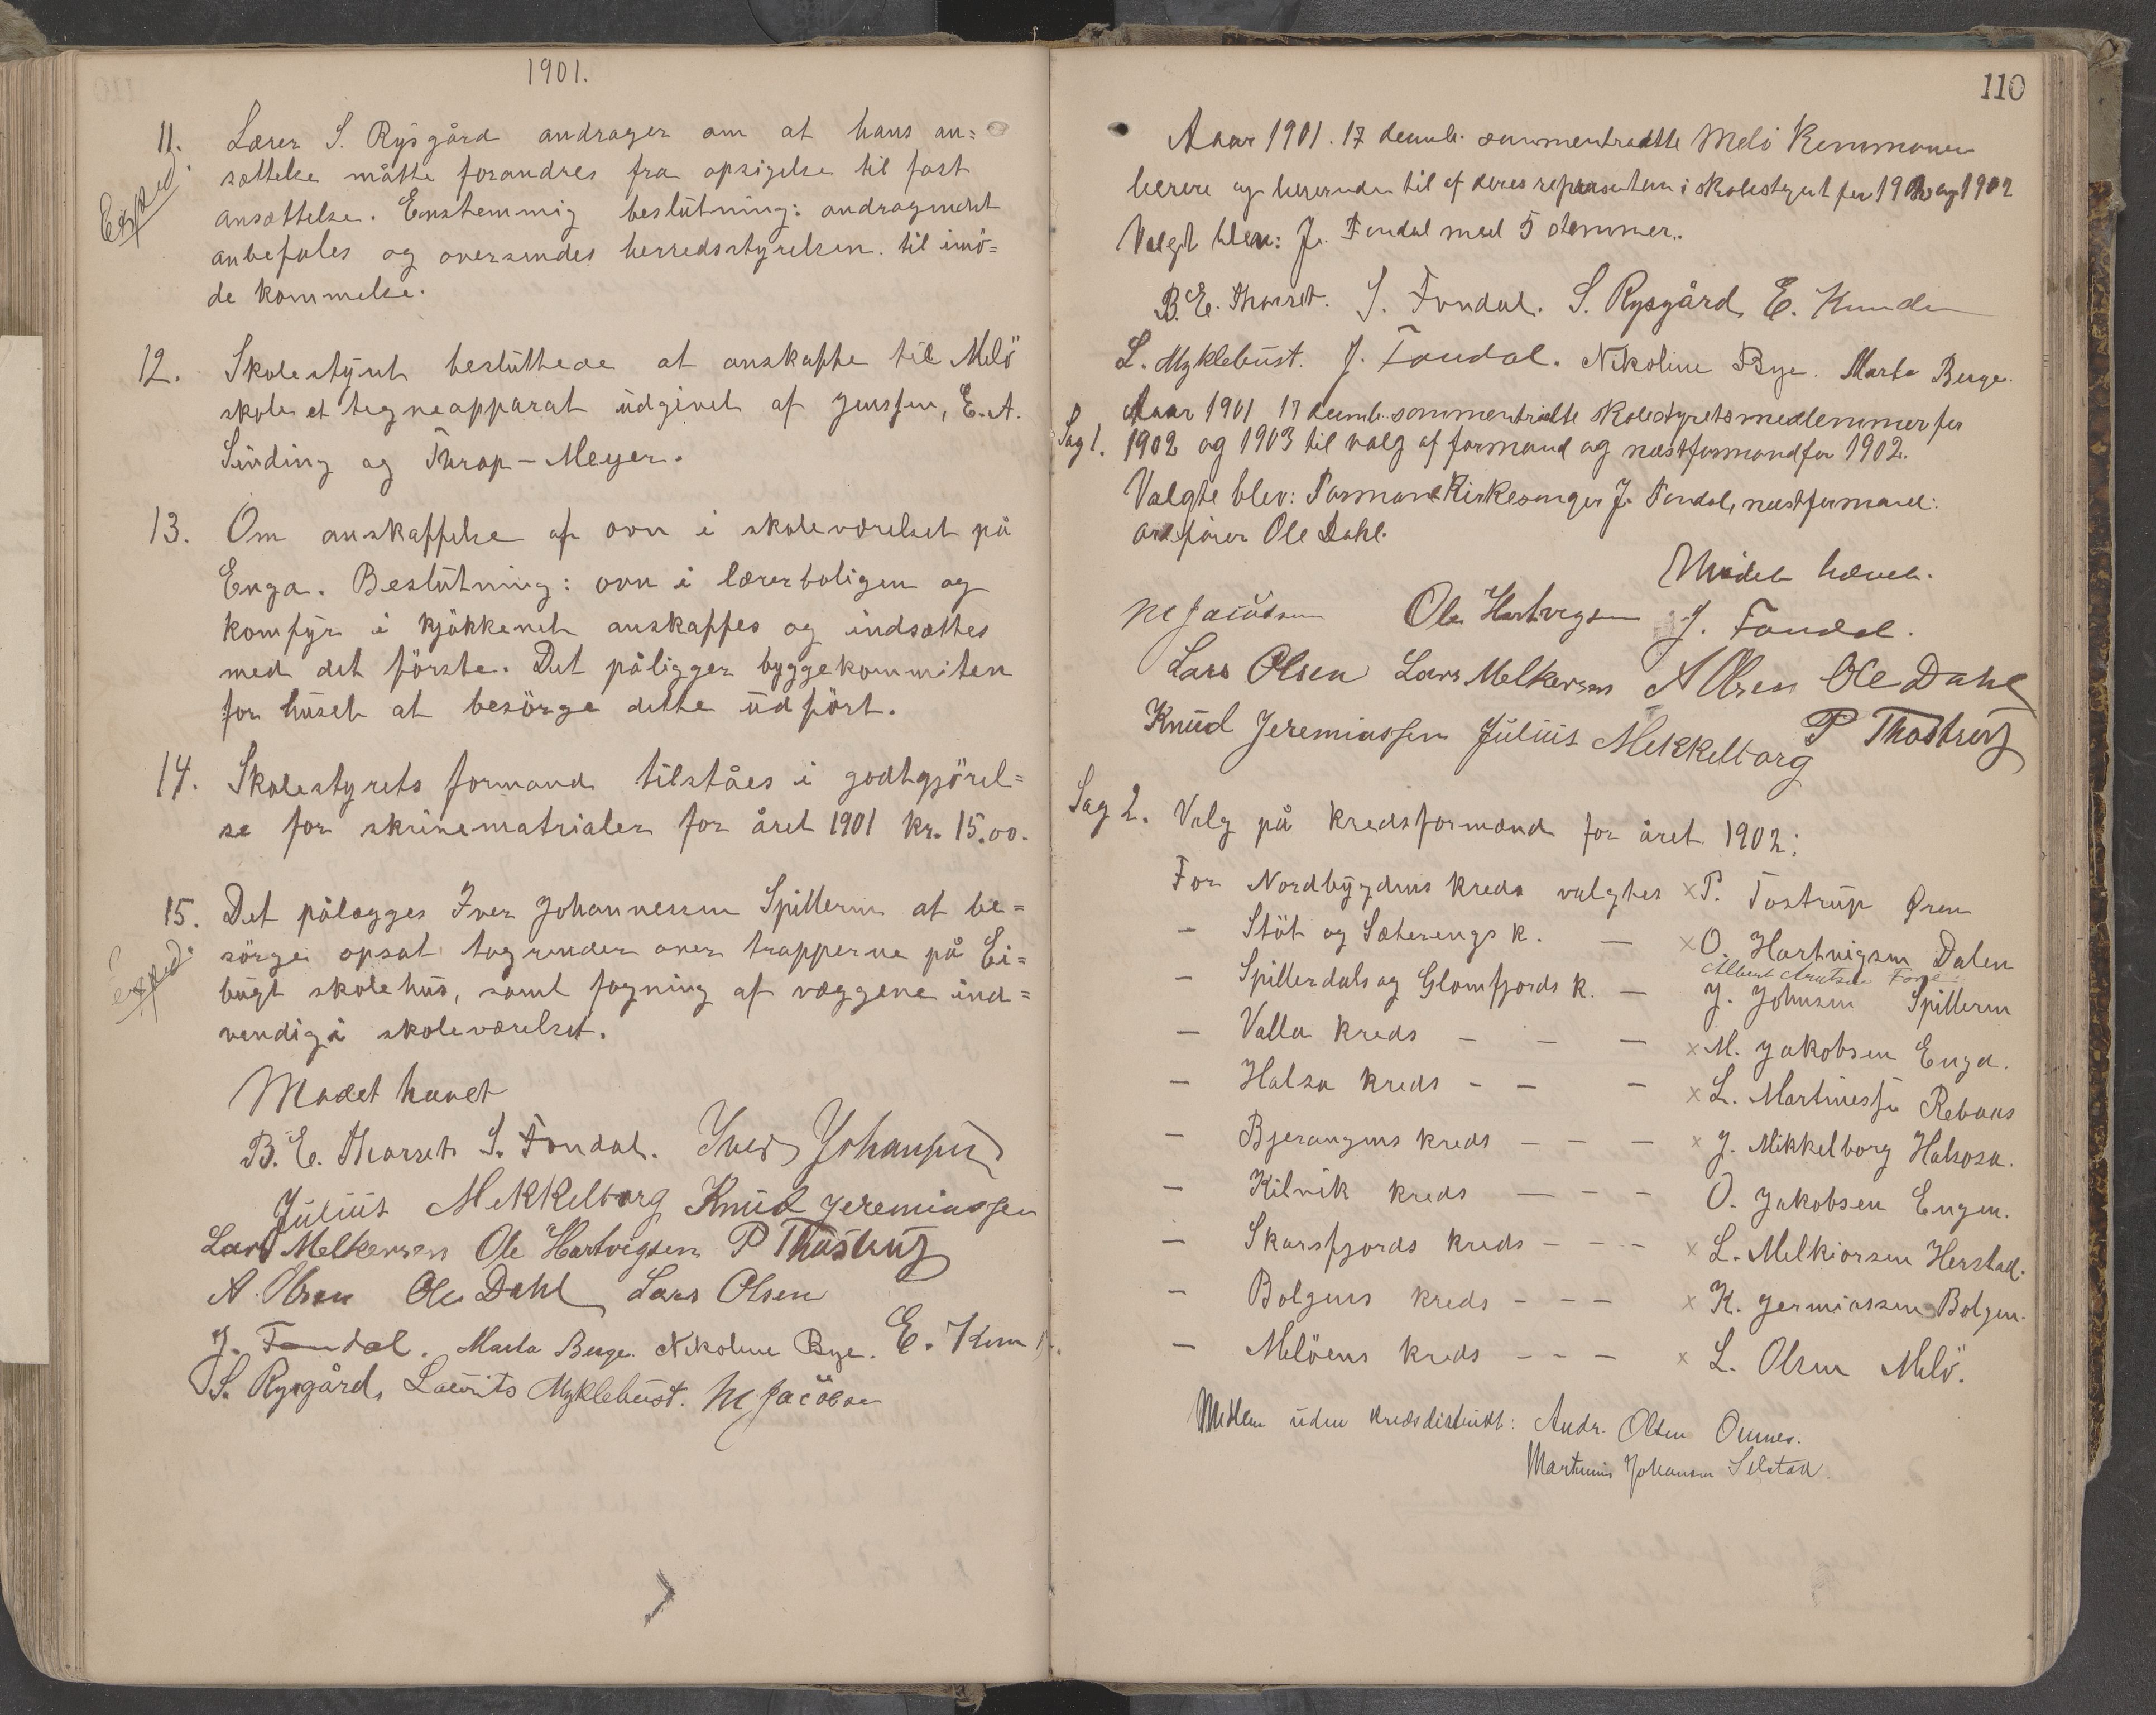 1901.
11. Lærer S. Rysgård andrager om at hans an=
Exped.
sættelse måtte forandres fra opsigelse til fast
ansættelse. Enstemmig beslutning: andragendet
anbefales og oversendes herredsstyrelsen til imö=
de kommelse.
12. Skolestyret besluttede at anskaffe til Melö
skole et tegneapparat udgivet af Jenssen, E. A.
Sinding og Thrap-Meyer.
13. Om anskaffelse af ovn i skoleværelset på
Enga. Beslutning: ovn i lærerboligen og
komfyr i kjökkenet anskaffes og indsættes
med det förste. Det påligger byggekommiten
for huset at besörge dette udfört.
14. Skolestyrets formand tilståes i godtgjörel=
se for skrivematrialer for året 1901 kr. 15.00.
15. Det pålægges Iver Johannessen Spilleren at be=
exped.
sörge opsat tagrender over trapperne på Ei=
bugt skolehus, samt fogning af væggene ind=
vendig i skoleværelset.
Mødet hævet
B. E. Tharset. S. Fondal. Iver Johansen
Julius Mekkelborg Knud Jeremiassen
Lars Melkersen Ole Hartvigsen P Thostrup
A. Olsen Ole Dahl Lars Olsen
J. Fondal. Marta Berge. Nikoline Bye. E.
S. Rysgård, Laurits Myklebust. M Jacobsen
110
Aaar 1901. 17 decemb. sammentraadte Melö Kommunes
lærere og lærerinder til af deres repræsentant i skolestyret for og 1902
Valgt blev: J. Fondal med 5 stemmer.
B. E. Tharset. S. Fondal. S. Rysgård, E.
L. Myklebust. J. Fondal. Nikoline Bye. Marta Berge.
Aaar 1901 17 decemb. sammentraadte skolestyretsmedlemmer for
Sag 1. 1902 og 1903 til valg af formand og næstformand for 1902.
Valgte blev: Formand Kirkesanger J. Fondal, næstformand:
ordfører Ole Dahl.
Mødet hævet.
M Jacobsen Ole Hartvigsen J. Fondal.
Lars Olsen Lars Melkersen A Olsen Ole Dahl
Knud Jeremiassen Julius Mekkelborg P Thostrup
Sag 2. Valg på kredsformænd for året 1902:
For Nordbygdens kreds valgtes x P. Tostrup Øren
- Støt og Sæterengs k. - x O. Hartvigsen Dalen
Albert Arntsen
- Spillerdals og Glomfjords k. - J. Johnsen Spilleren
- Valla kreds - - - x M. Jakobsen Enga.
- Halsa kreds - - - x L. Martinessen Rebaas
- Bjerangens kreds - - - x J. Mikkelborg Halsosa.
- Kilvik kreds - - - O. Jakobsen Engen.
- Skarsfjords kreds - - - x L. Melkiorsen Herstad.
- Bolgens kreds - - - x K. Jermiassen Bolgen.
- Melöens kreds - - - x L. Olsen Melö.
Medlem uden kredsdistrikt: Andr. Olsen Ounes.
Martinus Johansen Selstad.